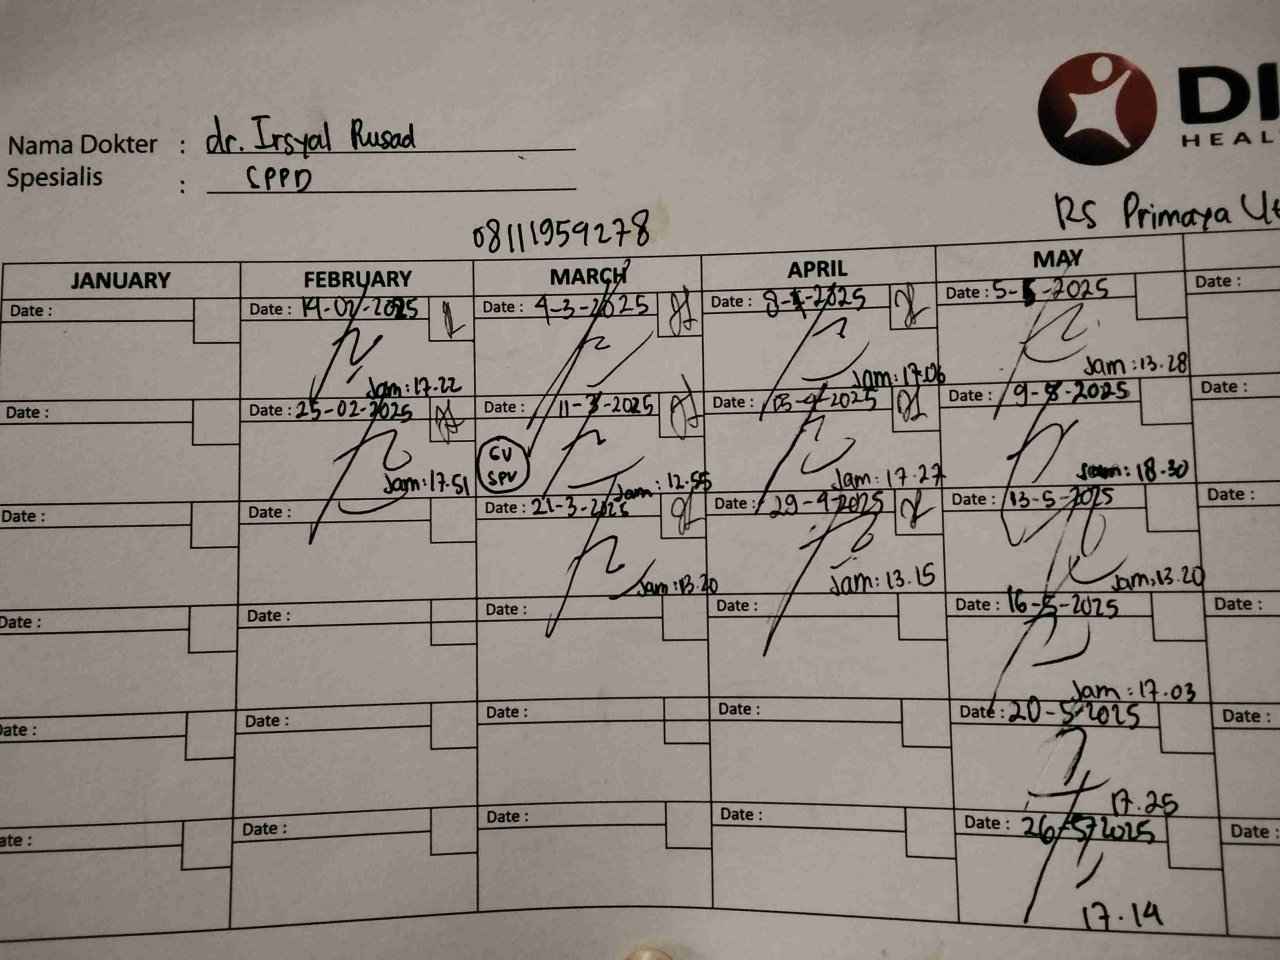 Nama Dokter : dr. Irsyal Rusad
Spesialis : SPPD
DI
HEAL
RS Primaya Ut
08111959278
JANUARY FEBRUARY MARCH APRIL MAY
Date : Date : 14-02-2025 Date : 4-3-2025 Date : 8-4-2025 Date : 5-5-2025
Jam : 17.22 Jam : 17.06 Jam : 13.28
Date : Date : 25-02-2025 Date : 11-3-2025 Date : -4-2025 Date : 9-5-2025 Date :
Jam : 17.51 GV SPV Jam : 12.55 Jam : 17.27 Jam : 18.30
Date : Date : Date : 21-3-2025 Date : 29-4-2025 Date : 13-5-2025 Date :
Jam : 13.20 Jam : 13.15 Jam : 13.20
Date : Date : Date : Date : Date : 16-5-2025 Date :
Jam : 17.03
Date : Date : Date : Date : Date : 20-5-2025 Date :
17.25
ate : Date : Date : Date : Date : 26-5-2025 Date :
17.14